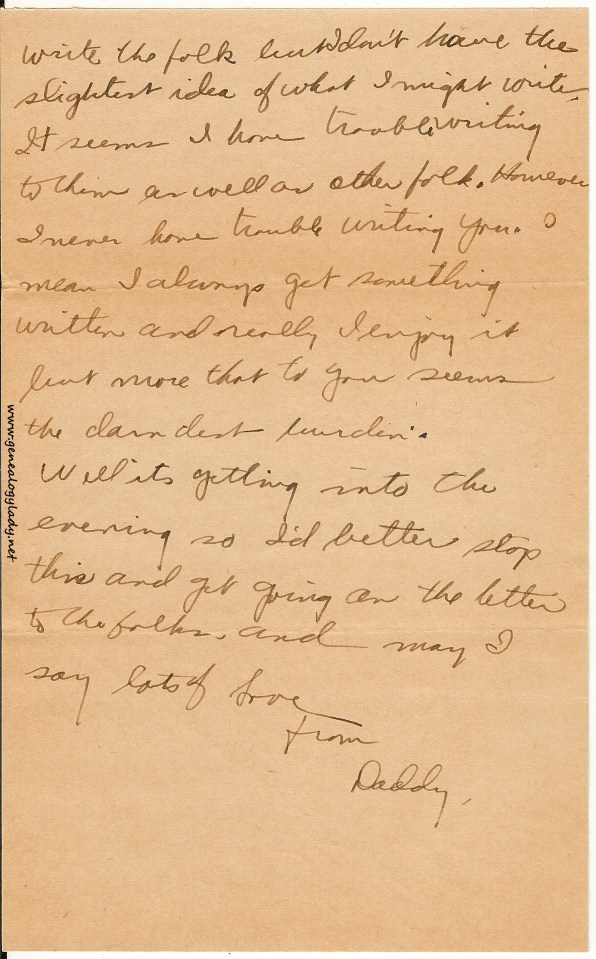 write the folk but I don't have the
slightest idea of what I might write.
It seems I have trouble writing
to them as well as other folk. However
I never have trouble writing you. I
mean I always get something
written and really I enjoy it
but more that to you seems
the darndest burden.
Well its getting into the
evening so I'd better stop
this and get going on the letter
to the folks. and may I
say lots of love
From
Daddy,
www.genealogylady.net